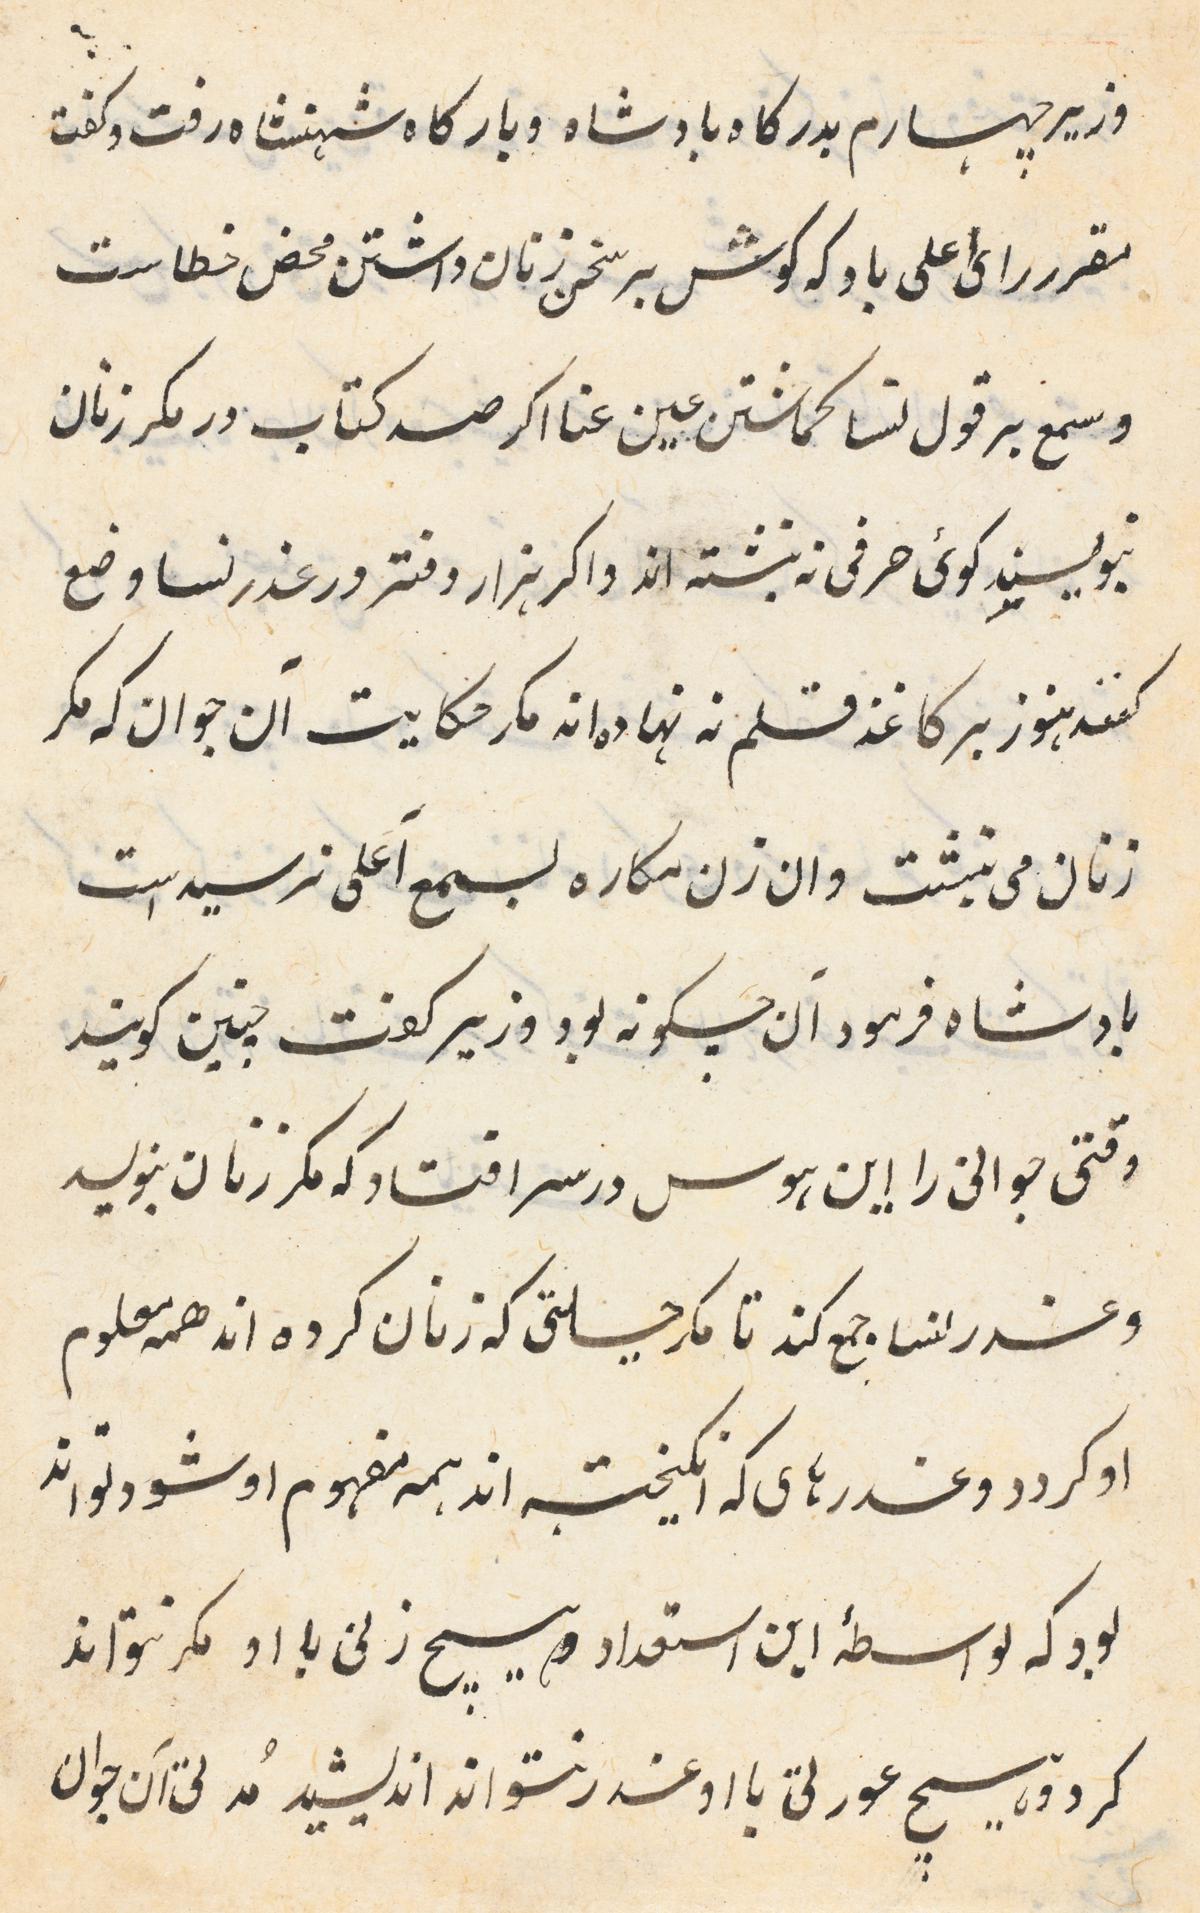 وزیر چهارم بدرکاه بادشاه و بارکاه شهنشاه رفت و کفت
مقرر رای اعلی باد که کوش بر سخن زنان داشتن محض خطاست
و سمع بر قول نسا کماشتن عین عنا اکر صد کتاب در مکر زنان
بنویسند کوئ حرفی نه نبشته اند و اکر هزار دفتر در غدر نسا وضع
کنند هنوز بر کاغذ قلم نه نهاده اند مکر حکایت آن جوان که مکر
زنان می نبشت و ان زن مکاره بسمع اعلی نرسیده است
بادشاه فرمود آن چکونه بود وزیر کفت چنین کویند
وقتی جوانی را این هوس در سر افتاد که مکر زنان بنویسد
و غدر نسا جمع کند تا مکر حیلتی که زنان کرده اند همه معلوم
او کردد و غدرهای که انکیخته اند همه مفهوم او شود تواند
بود که بواسطهٔ این استعداد هیچ زنی با او مکر نتواند
کرد و هیچ عورتی با او غدر نتواند اندیشید مُدتی آن جوان